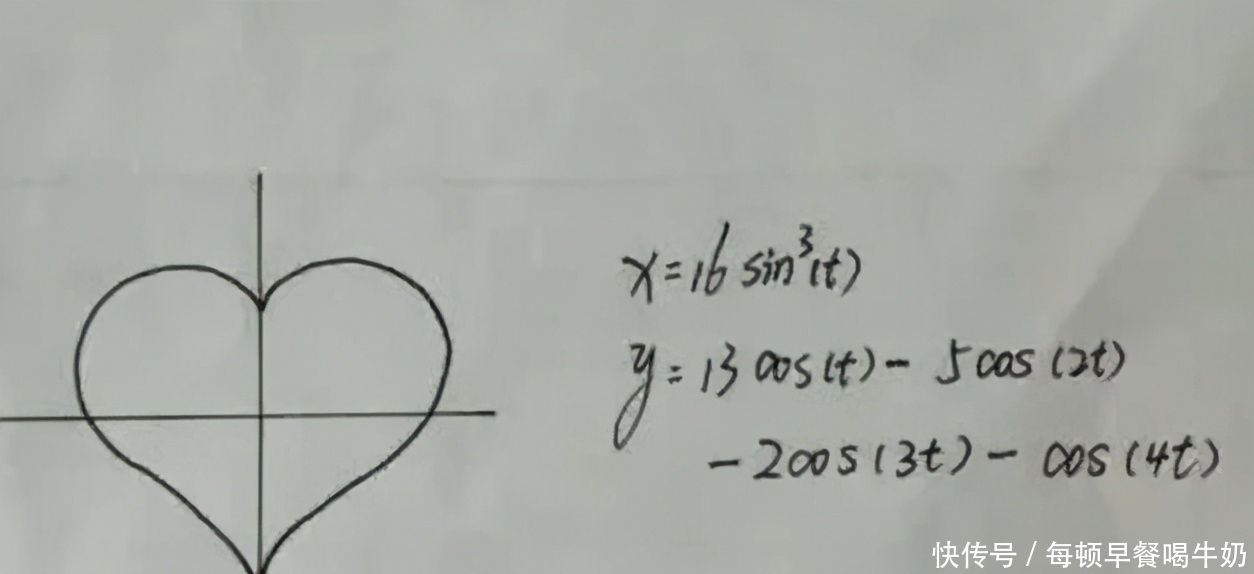 x=16 sin³(t)
y=13 cos(t)- 5cos(2t)
-2cos(3t)- cos(4t)
快传号 / 每顿早餐喝牛奶